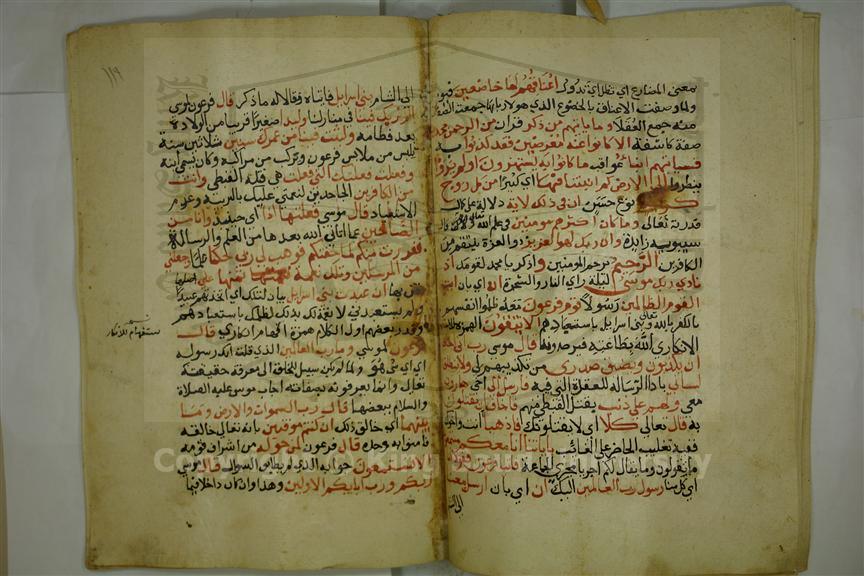 بمعنى المضارع اي تظل اي تدوم اعناقهم لها خاضعين فيومنون
ولما وصفت الاعناق بالخضوع الذي هو لاربابها جمعت الصفة
منه جمع العقلا وما ياتيهم من ذكر قران من الرحمن محدث
صفة كاشفة الا كانوا عنه معرضين فقد كذبوا به
فسياتيهم انباء عواقب ما كانوا به يستهزون اولم يروا
ينظروا الى الارض كم انبتنا فيها اي كثيرا من كل زوج
كريم نوع حسن ان في ذلك لاية دلالة على كمال
قدرته تعالى وما كان اكثرهم مومنين في علم الله تعالى وكان قال
سيبويه زايدة وان ربك لهو العزيز ذو العزة ينتقم من
الكافرين الرحيم يرحم المومنين واذكر يا محمد لقومك اذ
نادى ربك موسى ليلة راي النار والشجرة ان اي بان ايت
القوم الظالمين رسولا قوم فرعون معه ظلموا انفسهم
بالكفر بالله تعالى وبني اسرائيل باستعبادهم الا يتقون الهمزة للاستفهام
الانكاري الله بطاعته فيوحدونه قال موسى رب اني اخاف
ان يكذبون ويضيق صدري من تكذيبهم لي ولا ينطلق
لساني باداء الرسالة للعقدة التي فيه فارسل الى اخي هارون
معي ولهم علي ذنب بقتل القبطي منهم فاخاف ان يقتلون
به قال تعالى كلا اي لا يقتلونك فاذهبا انت واخوك
ففيه تغليب الحاضر على الغائب باياتنا انا معكم مستمعون
ما يقولون وما يقال لكم اجريا مجرى الجماعة فاتيا فرعون فقولا انا
اي كل منا رسول رب العالمين اليك ان اي بان ارسل معنا
الى الشام
١١٩
الى الشام بني اسرائيل فاتياه فقالا له ما ذكر قال فرعون لموسى
الم نربك فينا في منازلنا وليدا صغيرا قريبا من الولادة
بعد فطامه ولبثت فينا من عمرك سنين ثلاثين سنة
يلبس من ملابس فرعون ويركب من مراكبه وكان يسمى ابنه
وفعلت فعلتك التي فعلت هي قتله القبطي وانت
من الكافرين الجاحدين لنعمتي عليك بالتربية وعدم
الاستعباد قال موسى فعلتها اذا اي حينئذ وانا من
الضالين عما اتاني الله بعدها من العلم والرسالة
ففررت منكم لما خفتكم فوهب لي ربي حكما علما وجعلني
من المرسلين وتلك نعمة تمنها علي اصلها
تمن بها ان عبدت بني اسرائيل بيان لتلك اي اتخذتهم عبيدا
ولم تستعبدني لا نعمة لك بذلك لظلمك باستعبادهم
وقدر بعضهم اول الكلام همزة استفهام انكاري قال
استفهام للانكار
فرعون لموسى وما رب العالمين الذي قلت انك رسوله
اي اي شي هو ولما لم يكن سبيل للخلق الى معرفة حقيقته
تعالى وانما يعرفونه بصفاته اجاب موسى عليه الصلاة
والسلام ببعضها قال رب السموات والارض وما
بينهما اي خالق ذلك ان كنتم موقنين بانه تعالى خالقه
فامنوا به وحده قال فرعون لمن حوله من اشراف قومه
الا تستمعون جوابه الذي لم يطابق السوال قال موسى
ربكم ورب ابايكم الاولين وهذا وان كان داخلا فيما